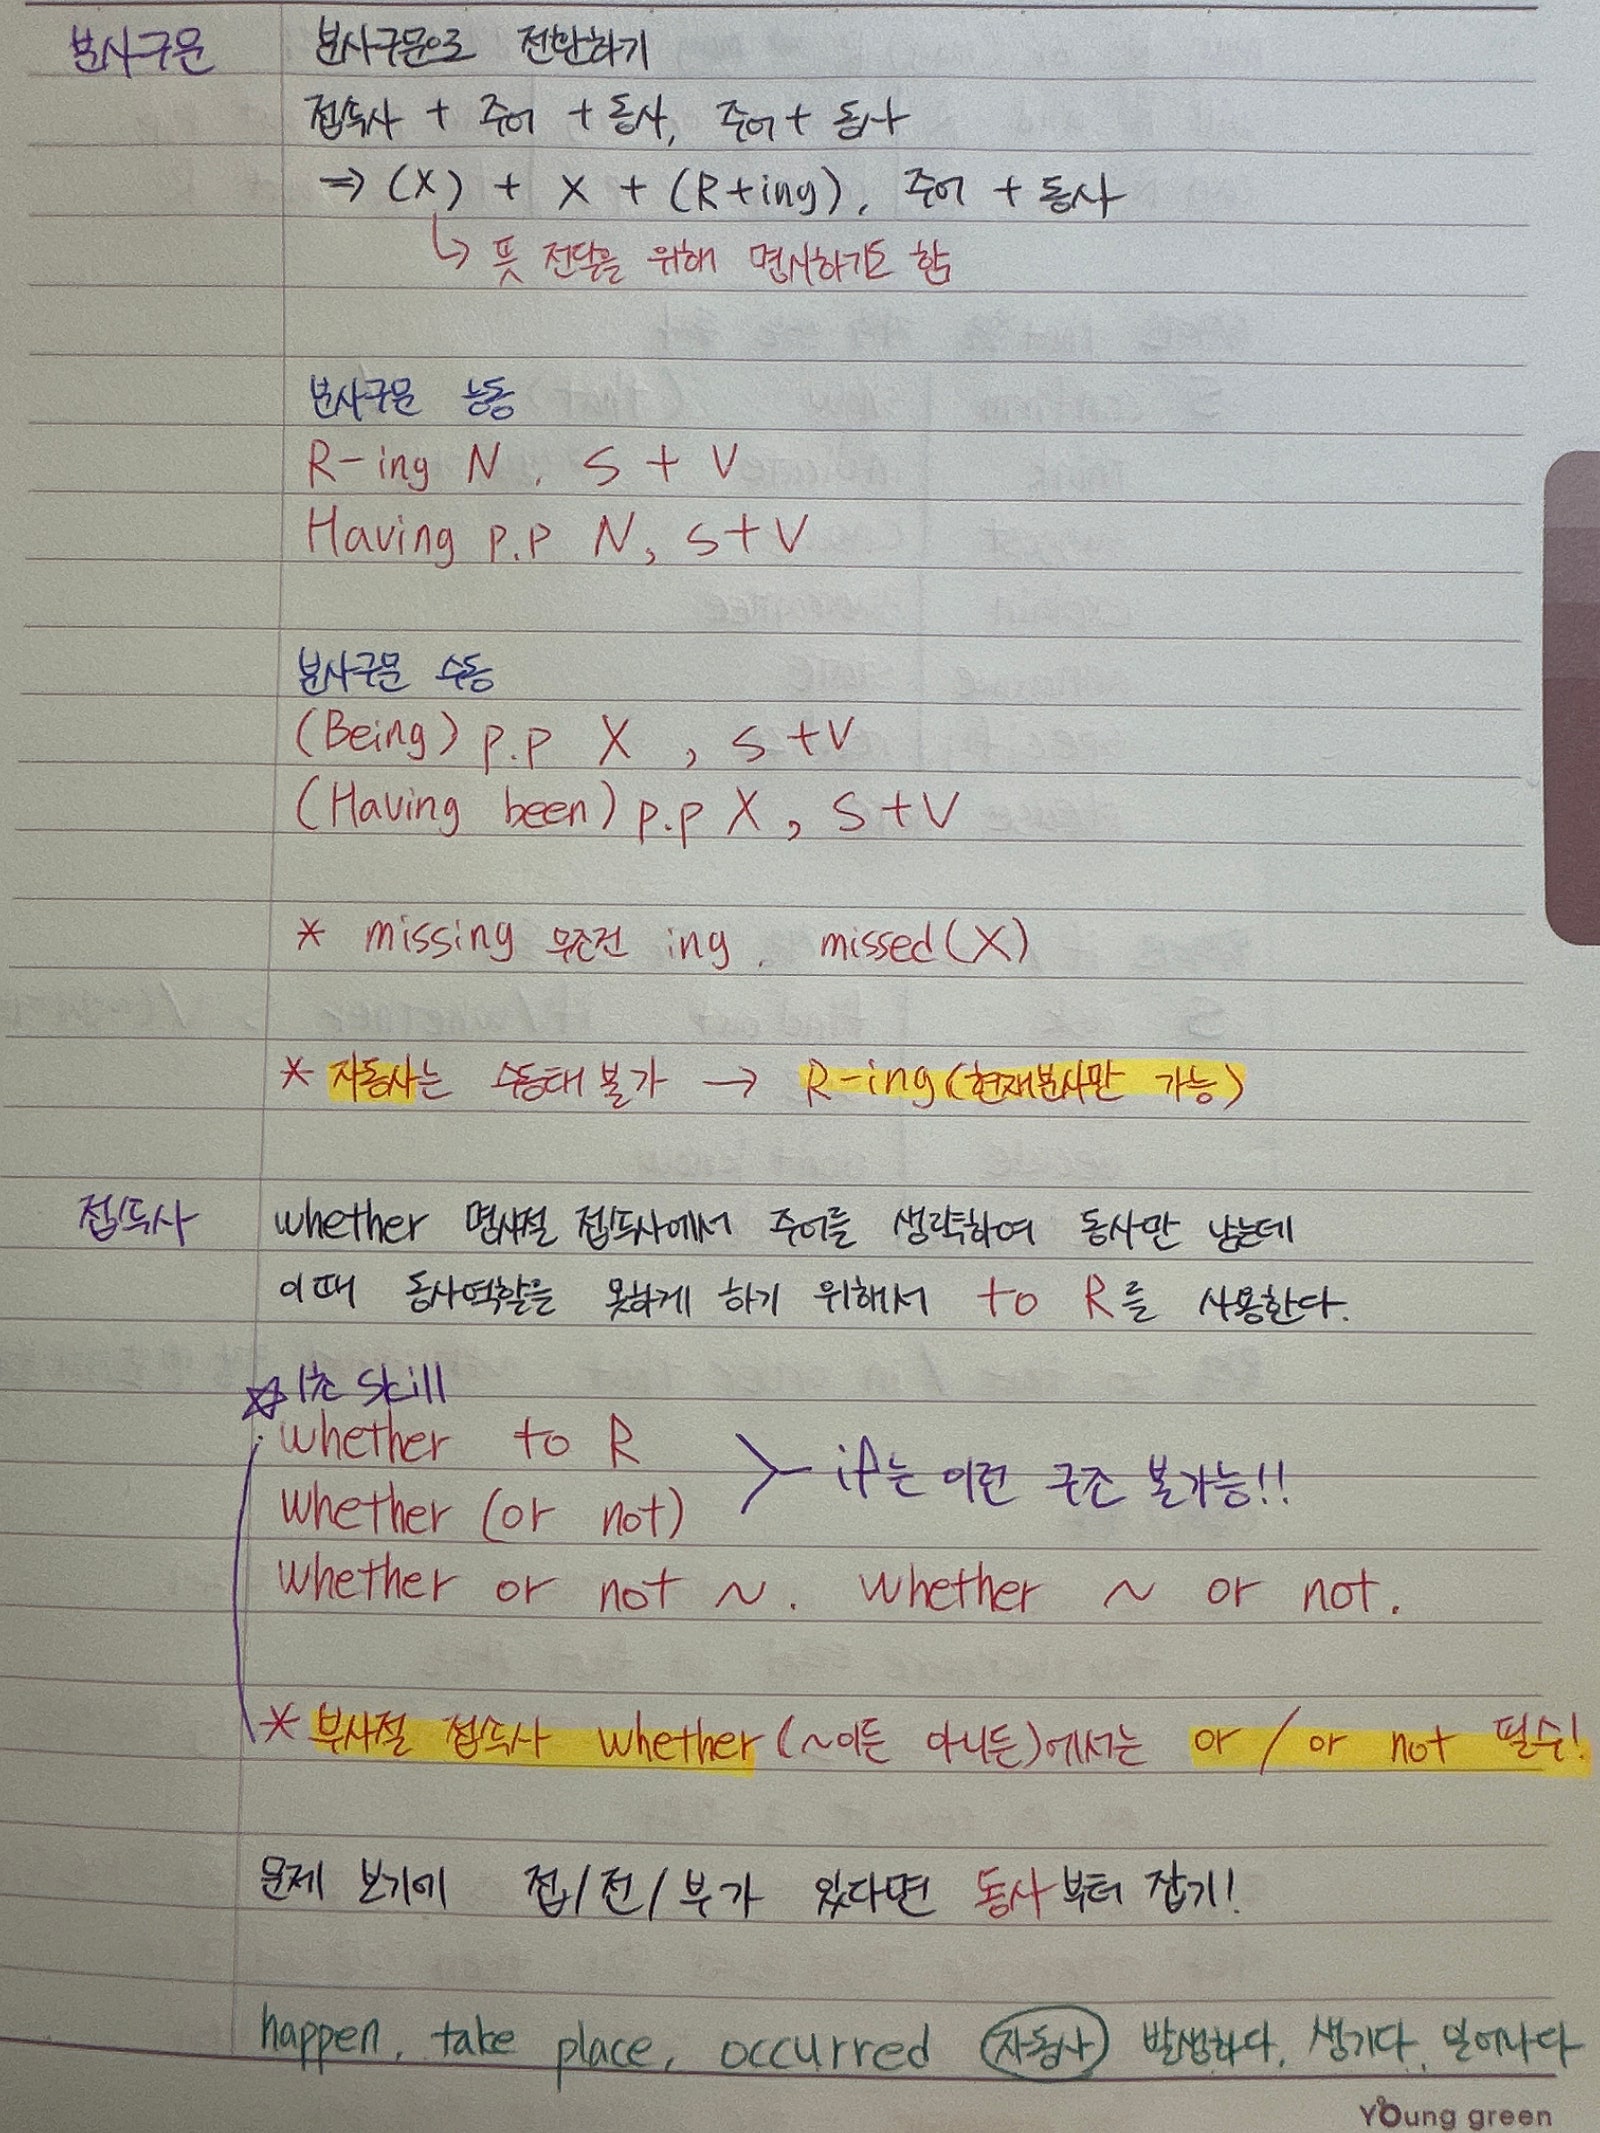 분사구문
분사구문으로 전환하기
접속사 + 주어 + 동사, 주어 + 동사
⇒ (X) + X + (R+ing), 주어 + 동사
↳ 뜻 전달을 위해 명사하기도 함
분사구문 능동
R-ing N, S + V
Having p.p N, S+V
분사구문 수동
(Being) p.p X , S +V
(Having been) p.p X , S +V
* missing 무조건 ing, missed(X)
* 자동사는 수동태 불가 → R-ing(현재분사만 가능)
접속사
whether 명사절 접속사에서 주어를 생략하여 동사만 남는데
이때 동사역할을 못하게 하기 위해서 to R를 사용한다.
☆ 1초 skill
whether to R
whether (or not)
if는 이런 구조 불가능!!
whether or not ~. whether ~ or not.
* 부사절 접속사 whether (~이든 아니든)에서는 or / or not 필수!
문제 보기에 접/전/부가 있다면 동사부터 잡기!
happen, take place, occurred (자동사) 발생하다, 생기다, 일어나다
Young green